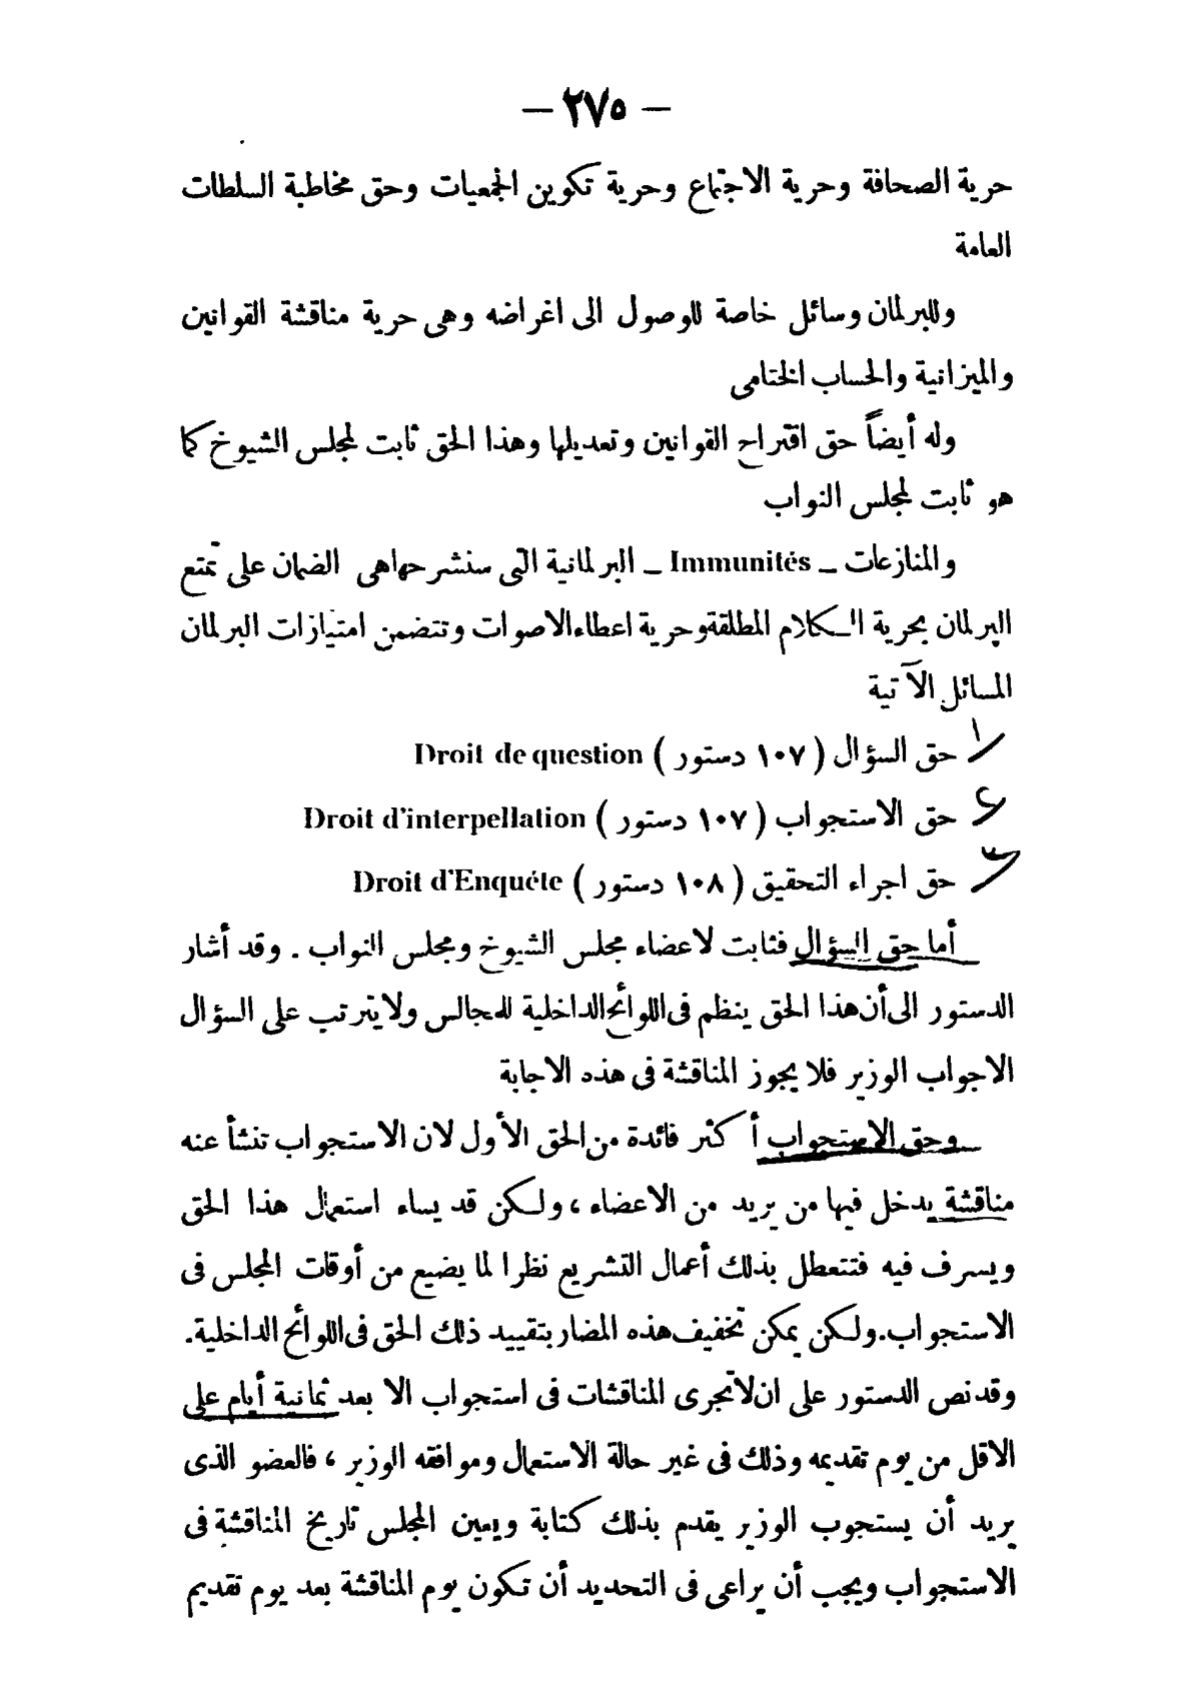 — ٢٧٥ —
حرية الصحافة وحرية الاجتماع وحرية تكوين الجمعيات وحق مخاطبة السلطات
العامة
وللبرلمان وسائل خاصة للوصول الى اغراضه وهى حرية مناقشة القوانين
والميزانية والحساب الختامى
وله أيضاً حق اقتراح القوانين وتعديلها وهذا الحق ثابت لمجلس الشيوخ كما
هو ثابت لمجلس النواب
والمنازعات _ Immunités _ البرلمانية التى سنشرحهاهى الضمان على تمتع
البرلمان بحرية الكلام المطلقةوحرية اعطاءالاصوات وتتضمن امتيازات البرلمان
المسائل الآتية
١/ حق السؤال ( ١٠٧ دستور ) Droit de question
٢/ حق الاستجواب ( ١٠٧ دستور ) Droit d'interpellation
٣/ حق اجراء التحقيق ( ١٠٨ دستور ) Droit d'Enquéte
أما حق السؤال فثابت لاعضاء مجلس الشيوخ ومجلس النواب . وقد أشار
الدستور الى أن هذا الحق ينظم فى اللوائح الداخلية للمجالس ولا يترتب على السؤال
الاجواب الوزير فلا يجوز المناقشة فى هذه الاجابة
وحق الاستجواب أكثر فائدة من الحق الأول لان الاستجواب تنشأ عنه
مناقشة يدخل فيها من يريد من الاعضاء ، ولكن قد يساء استعمال هذا الحق
ويسرف فيه فتتعطل بذلك أعمال التشريع نظرا لما يضيع من أوقات المجلس فى
الاستجواب. ولكن يمكن تخفيف هذه المضار بتقييد ذلك الحق فى اللوائح الداخلية.
وقد نص الدستور على ان لاتجرى المناقشات فى استجواب الا بعد ثمانية أيام على
الاقل من يوم تقديمه وذلك فى غير حالة الاستعمال وموافقه الوزير ، فالعضو الذى
يريد أن يستجوب الوزير يقدم بذلك كتابة ويعين المجلس تاريخ المناقشة فى
الاستجواب ويجب أن يراعى فى التحديد أن تكون يوم المناقشة بعد يوم تقديم